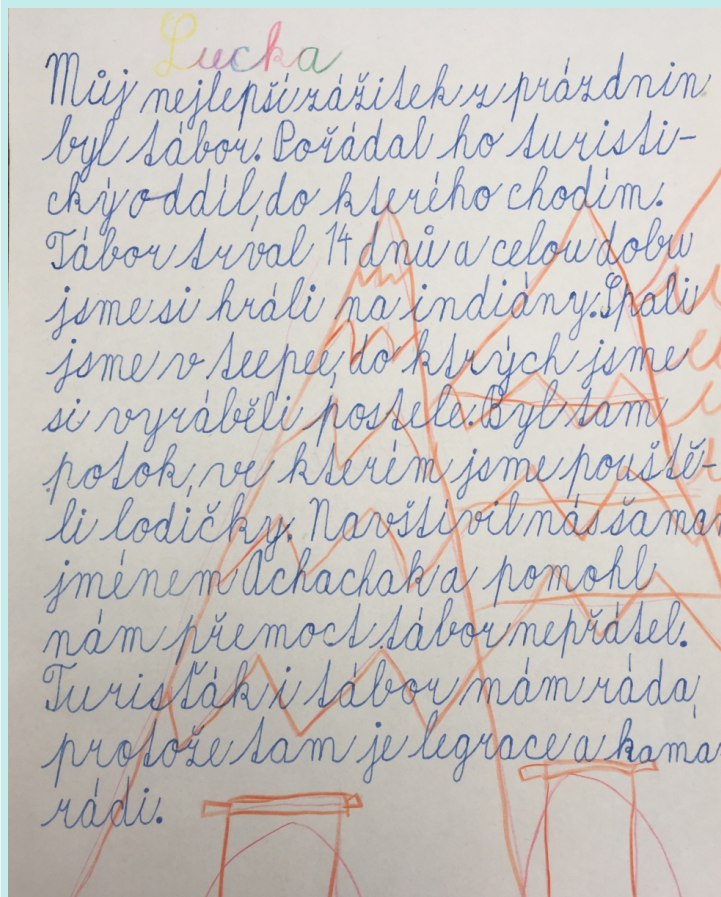 Lucka
Můj nejlepší zážitek z prázdnin
byl tábor. Pořádal ho turisti-
cký oddíl, do kterého chodím.
Tábor trval 14 dnů a celou dobu
jsme si hráli na indiány. Spali
jsme v teepee, do ktrých jsme
si vyráběli postele. Byl tam
potok, ve kterém jsme pouště-
li lodičky. Navštívil nás šaman
jménem Achachak a pomohl
nám přemoct tábor nepřátel.
Turisťák i tábor mám ráda,
protože tam je legrace a kama
rádi.